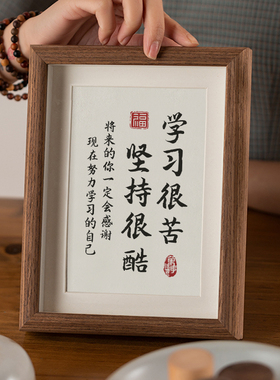 学习很苦
坚持很酷
福
将来的你一定会感谢
现在努力学习的自己